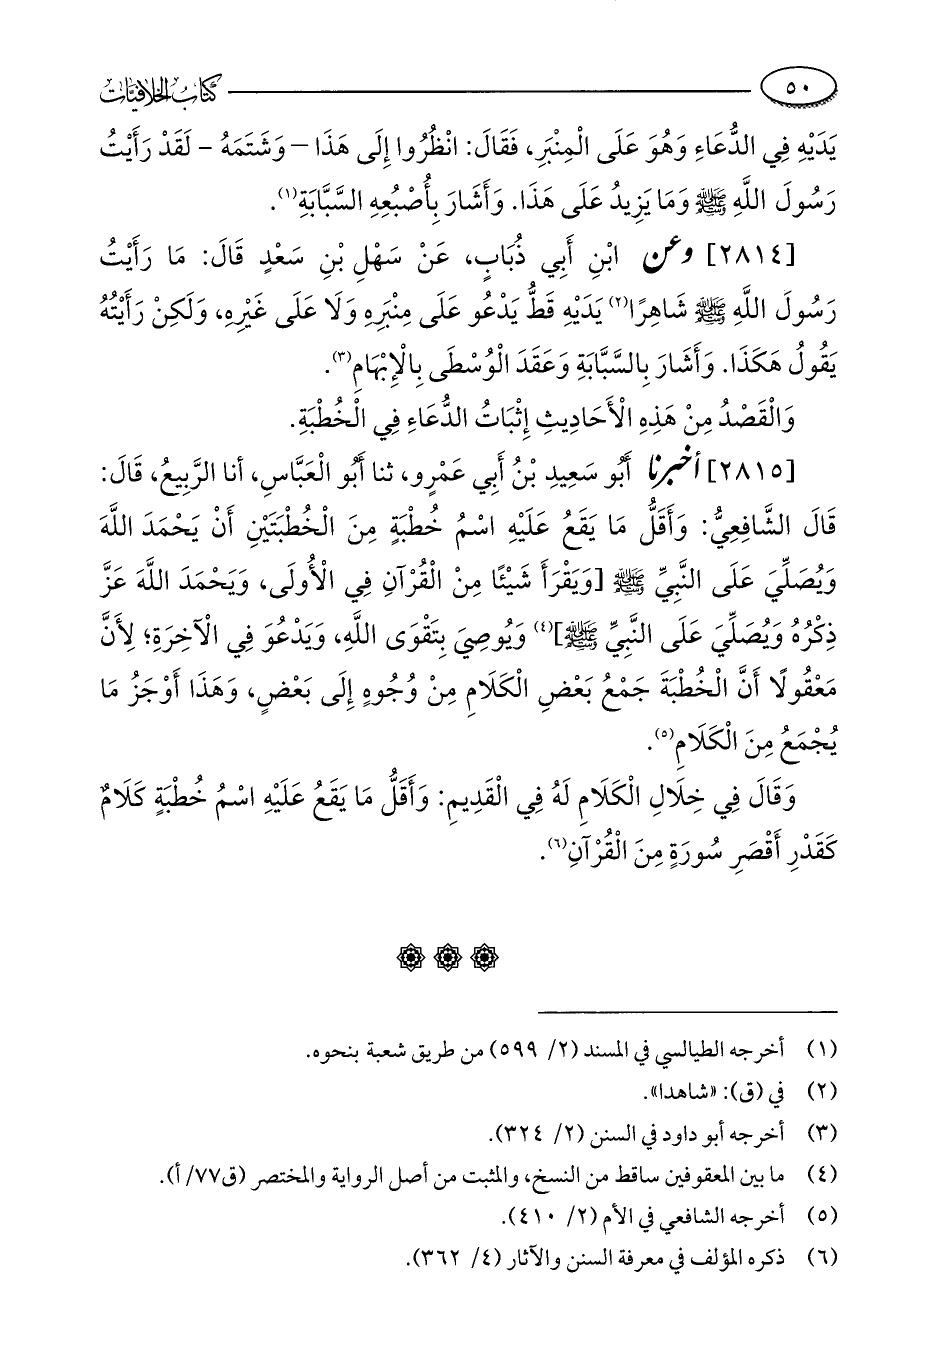 ٥٠ كتاب الخلافيات
يَدَيْهِ فِي الدُّعَاءِ وَهُوَ عَلَى الْمِنْبَرِ، فَقَالَ: انْظُرُوا إِلَى هَذَا – وَشَتَمَهُ – لَقَدْ رَأَيْتُ
رَسُولَ اللَّهِ ﷺ وَمَا يَزِيدُ عَلَى هَذَا. وَأَشَارَ بِأُصْبُعِهِ السَّبَّابَةِ(١).
[٢٨١٤] وعن ابْنِ أَبِي ذُبَابٍ، عَنْ سَهْلِ بْنِ سَعْدٍ قَالَ: مَا رَأَيْتُ
رَسُولَ اللَّهِ ﷺ شَاهِرًا(٢) يَدَيْهِ قَطُّ يَدْعُو عَلَى مِنْبَرِهِ وَلَا عَلَى غَيْرِهِ، وَلَكِنْ رَأَيْتُهُ
يَقُولُ هَكَذَا. وَأَشَارَ بِالسَّبَّابَةِ وَعَقَدَ الْوُسْطَى بِالْإِبْهَامِ(٣).
وَالْقَصْدُ مِنْ هَذِهِ الْأَحَادِيثِ إِثْبَاتُ الدُّعَاءِ فِي الْخُطْبَةِ.
[٢٨١٥] أخبرنا أَبُو سَعِيدِ بْنُ أَبِي عَمْرٍو، ثنا أَبُو الْعَبَّاسِ، أنا الرَّبِيعُ، قَالَ:
قَالَ الشَّافِعِيُّ: وَأَقَلُّ مَا يَقَعُ عَلَيْهِ اسْمُ خُطْبَةٍ مِنَ الْخُطْبَتَيْنِ أَنْ يَحْمَدَ اللَّهَ
وَيُصَلِّيَ عَلَى النَّبِيِّ ﷺ [وَيَقْرَأَ شَيْئًا مِنْ الْقُرْآنِ فِي الْأُولَى، وَيَحْمَدَ اللَّهَ عَزَّ
ذِكْرُهُ وَيُصَلِّيَ عَلَى النَّبِيِّ ﷺ](٤) وَيُوصِيَ بِتَقْوَى اللَّهِ، وَيَدْعُوَ فِي الْآخِرَةِ؛ لِأَنَّ
مَعْقُولًا أَنَّ الْخُطْبَةَ جَمْعُ بَعْضِ الْكَلَامِ مِنْ وُجُوهٍ إِلَى بَعْضٍ، وَهَذَا أَوْجَزُ مَا
يُجْمَعُ مِنَ الْكَلَامِ(٥).
وَقَالَ فِي خِلَالِ الْكَلَامِ لَهُ فِي الْقَدِيمِ: وَأَقَلُّ مَا يَقَعُ عَلَيْهِ اسْمُ خُطْبَةٍ كَلَامٌ
كَقَدْرِ أَقْصَرِ سُورَةٍ مِنَ الْقُرْآنِ(٦).
(١) أخرجه الطيالسي في المسند (٢/ ٥٩٩) من طريق شعبة بنحوه.
(٢) في (ق): «شاهدا».
(٣) أخرجه أبو داود في السنن (٢/ ٣٢٤).
(٤) ما بين المعقوفين ساقط من النسخ، والمثبت من أصل الرواية والمختصر (ق٧٧/ أ).
(٥) أخرجه الشافعي في الأم (٢/ ٤١٠).
(٦) ذكره المؤلف في معرفة السنن والآثار (٤/ ٣٦٢).